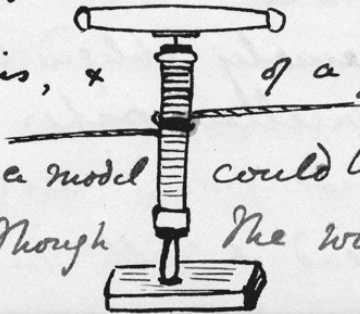 is, & of a
a model could
Though The wo